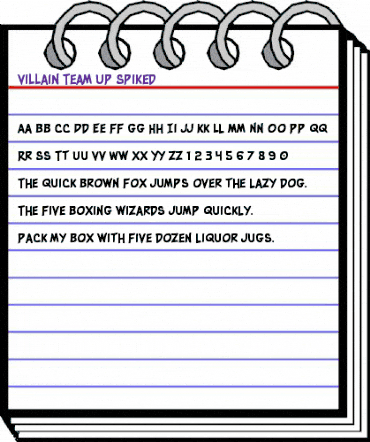 VILLAIN TEAM UP SPIKED
AA BB CC DD EE FF GG HH II JJ KK LL MM NN OO PP QQ
RR SS TT UU VV WW XX YY ZZ 1 2 3 4 5 6 7 8 9 0
THE QUICK BROWN FOX JUMPS OVER THE LAZY DOG.
THE FIVE BOXING WIZARDS JUMP QUICKLY.
PACK MY BOX WITH FIVE DOZEN LIQUOR JUGS.